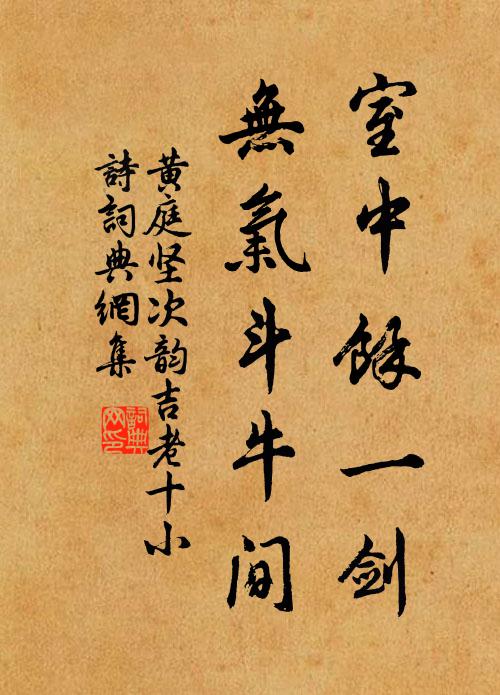 室中餘一劍
無氣斗牛間
黄庭坚次韵吉老十小
詩詞典網集
詞典網印